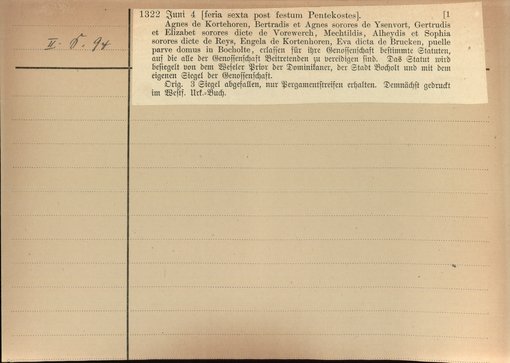 1322 Juni 4 [feria sexta post festum Pentekostes]. [1
Agnes de Kortehoren, Bertradis et Agnes sorores de Ysenvort, Gertrudis
et Elizabet sorores dicte de Vorewerch, Mechtildis, Alheydis et Sophia
sorores dicte de Reys, Engela de Kortenhoren, Eva dicta de Brucken, puelle
parve domus in Bocholte, erlassen für ihre Genossenschaft bestimmte Statuten,
auf die alle der Genossenschaft Beitretenden zu vereidigen sind. Das Statut wird
besiegelt von dem Weseler Prior der Dominikaner, der Stadt Bocholt und mit dem
eigenen Siegel der Genossenschaft.
Orig. 3 Siegel abgefallen, nur Pergamentstreifen erhalten. Demnächst gedruckt
im Westf. Urk.-Buch.